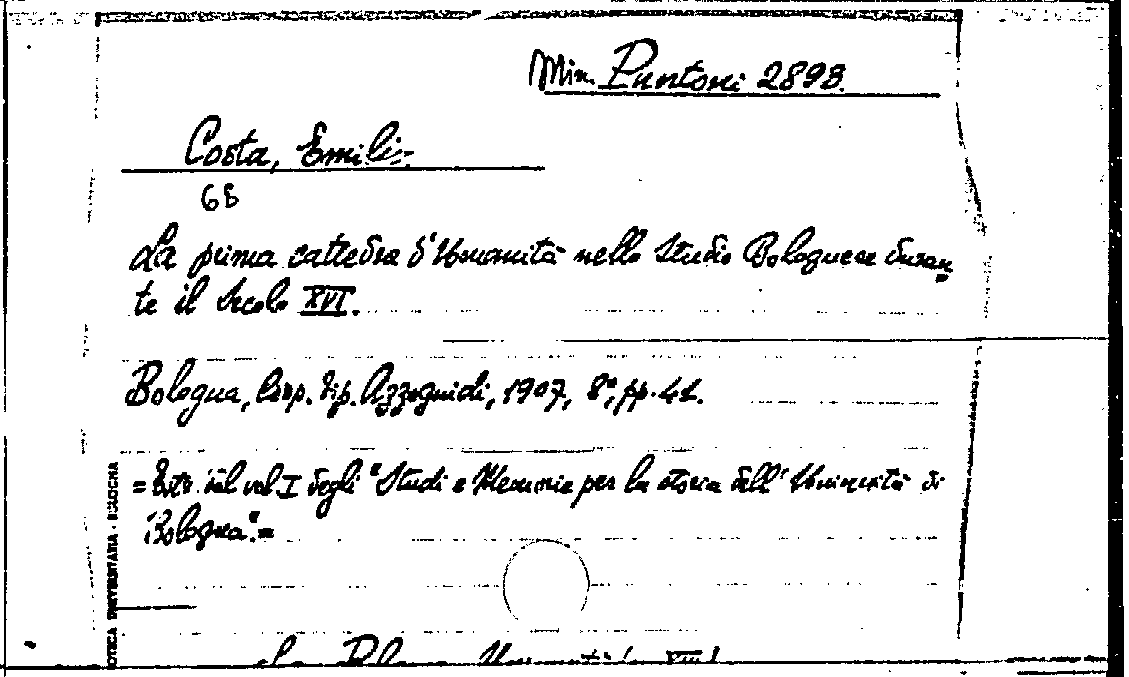 Min. Puntoni 2898.
Costa, Emilio
68
La prima cattedra d'Umanità nello Studio Bolognese duran
te il Secolo XVI.
Bologna, Coop. Tip. Azzoguidi, 1907, 8°, pp. 41.
= Estr. dal vol I degli "Studi e Memorie per la storia dell' Università di
Bologna". =
OTECA UNIVERSITARIA - BOLOGNA